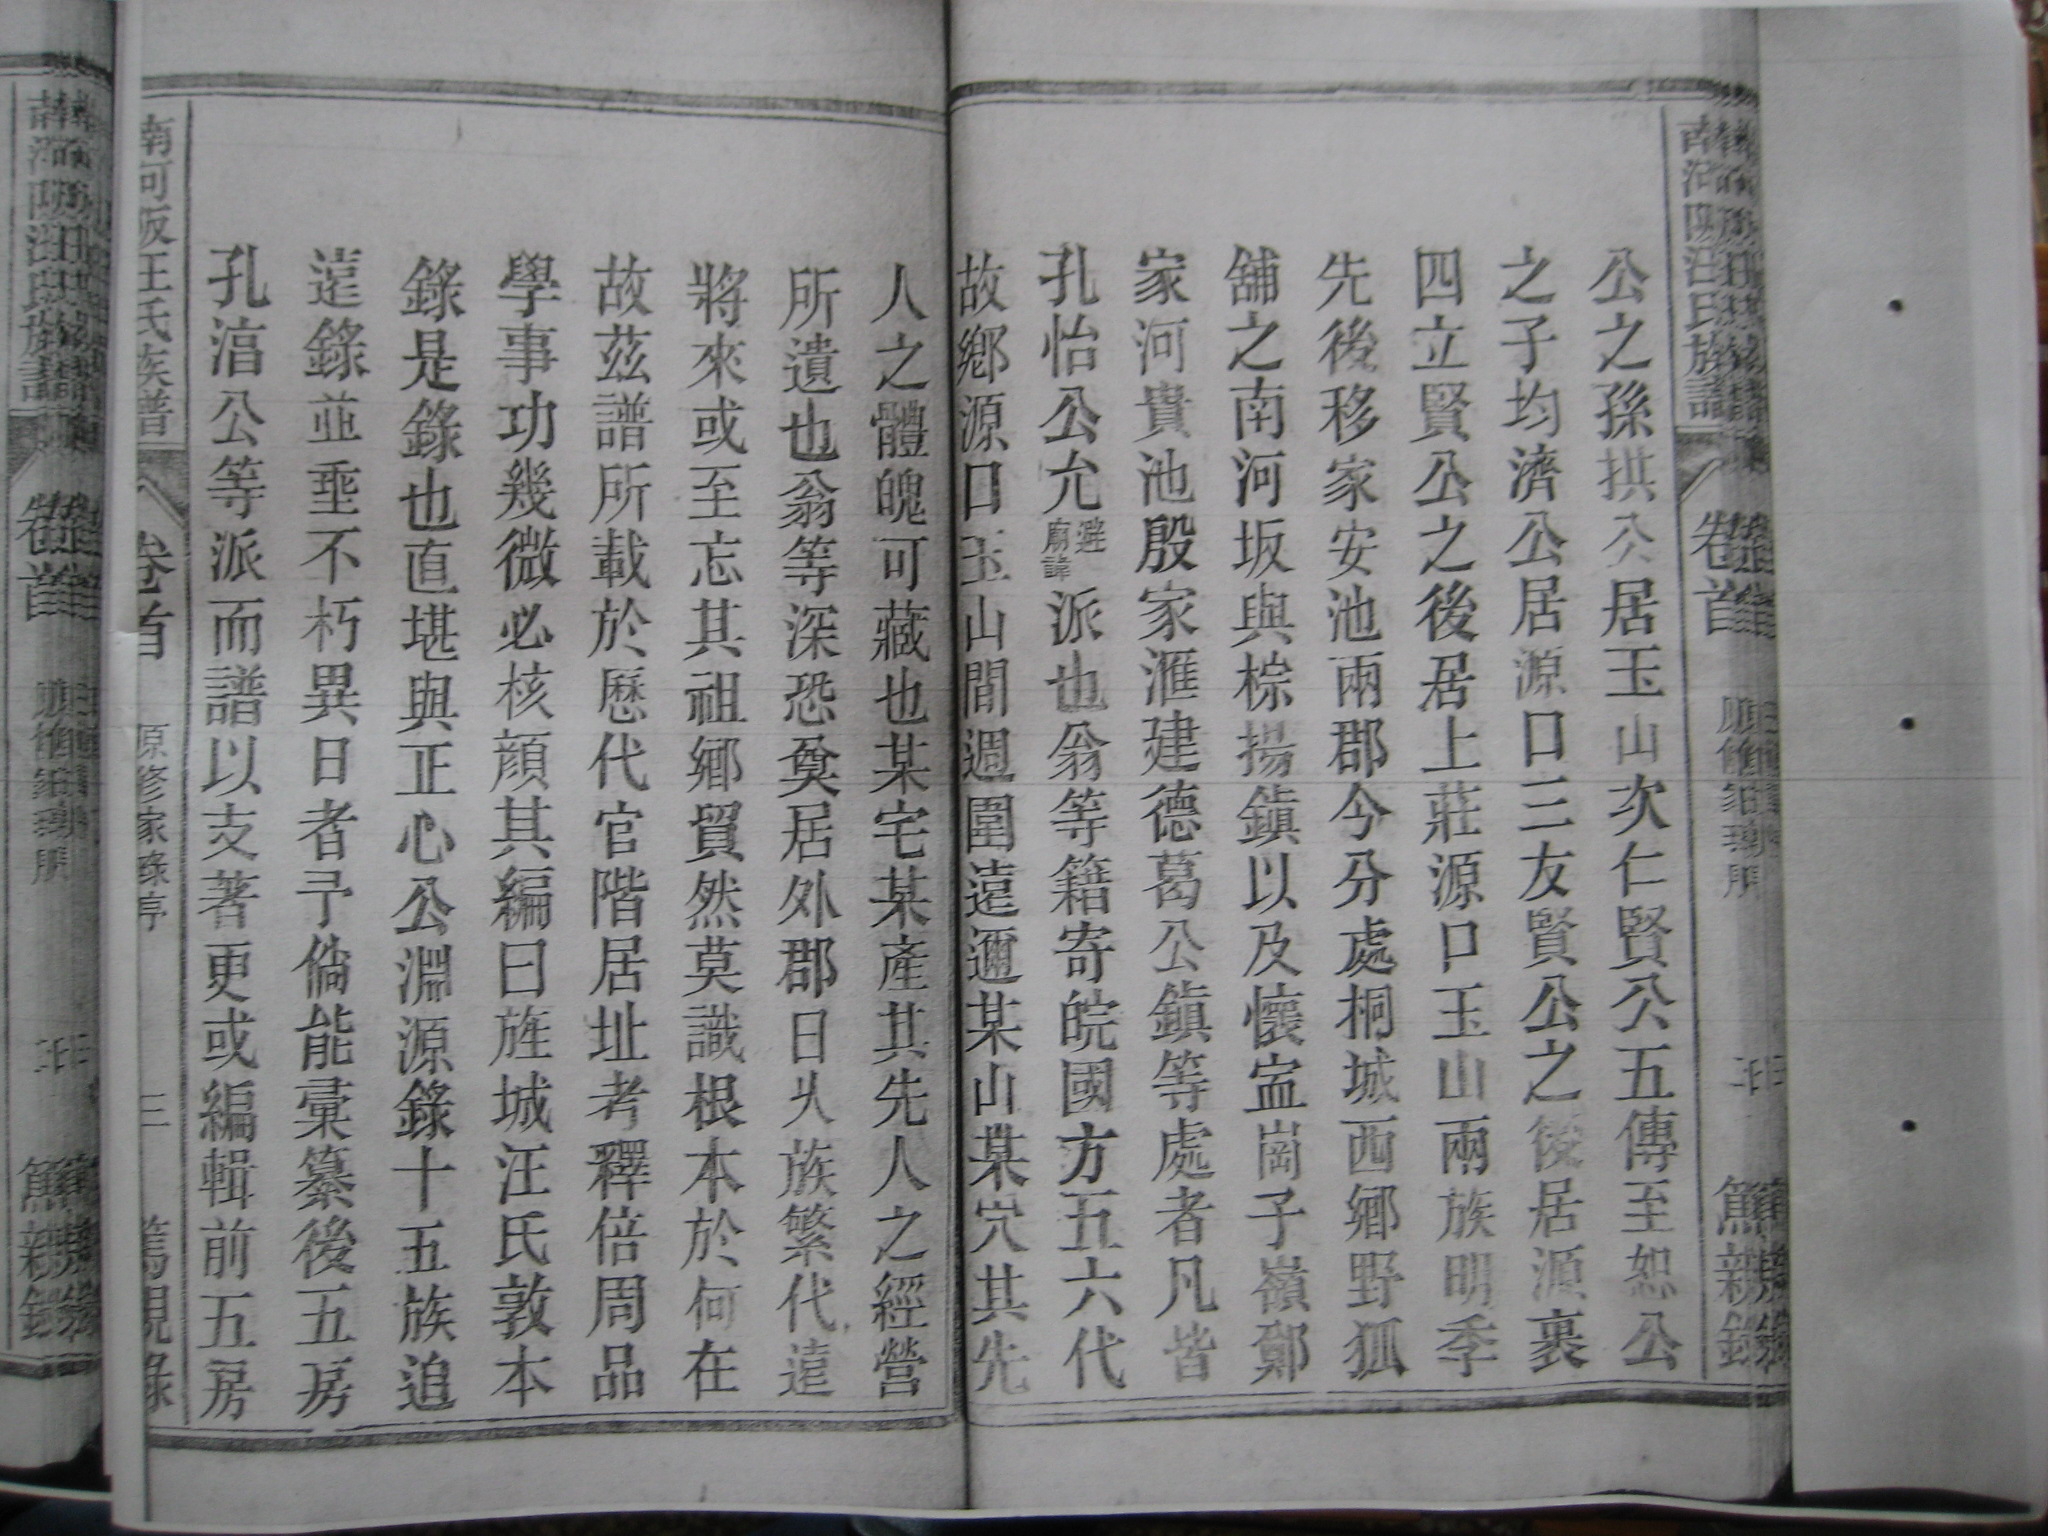 公之孫拱公居玉山次仁賢公五傳至恕公
之子均濟公居源口三友賢公之後居源裏
四立賢公之後居上莊源口玉山兩族明季
先後移家安池兩郡今分處桐城西鄉野狐
舖之南河坂與棕揚鎮以及懷寍崗子嶺鄭
家河貴池殷家滙建德葛公鎮等處者凡皆
孔怡公允避廟諱派也翁等籍寄皖國方五六代
故鄉源口玉山間週圍遠邇某山某穴其先
人之體魄可藏也某宅某產其先人之經營
所遺也翁等深恐奠居外郡日乆族繁代遠
將來或至忘其祖鄉貿然莫識根本於何在
故茲譜所載於歷代官階居址考釋倍周品
學事功幾微必核顏其編曰旌城汪氏敦本
錄是錄也直堪與正心公淵源錄十五族追
遠錄並垂不朽異日者予倘能彙纂後五房
孔湻公等派而譜以支著更或編輯前五房
南河坂汪氏族譜
卷首
原修家錄序
三
篤親錄